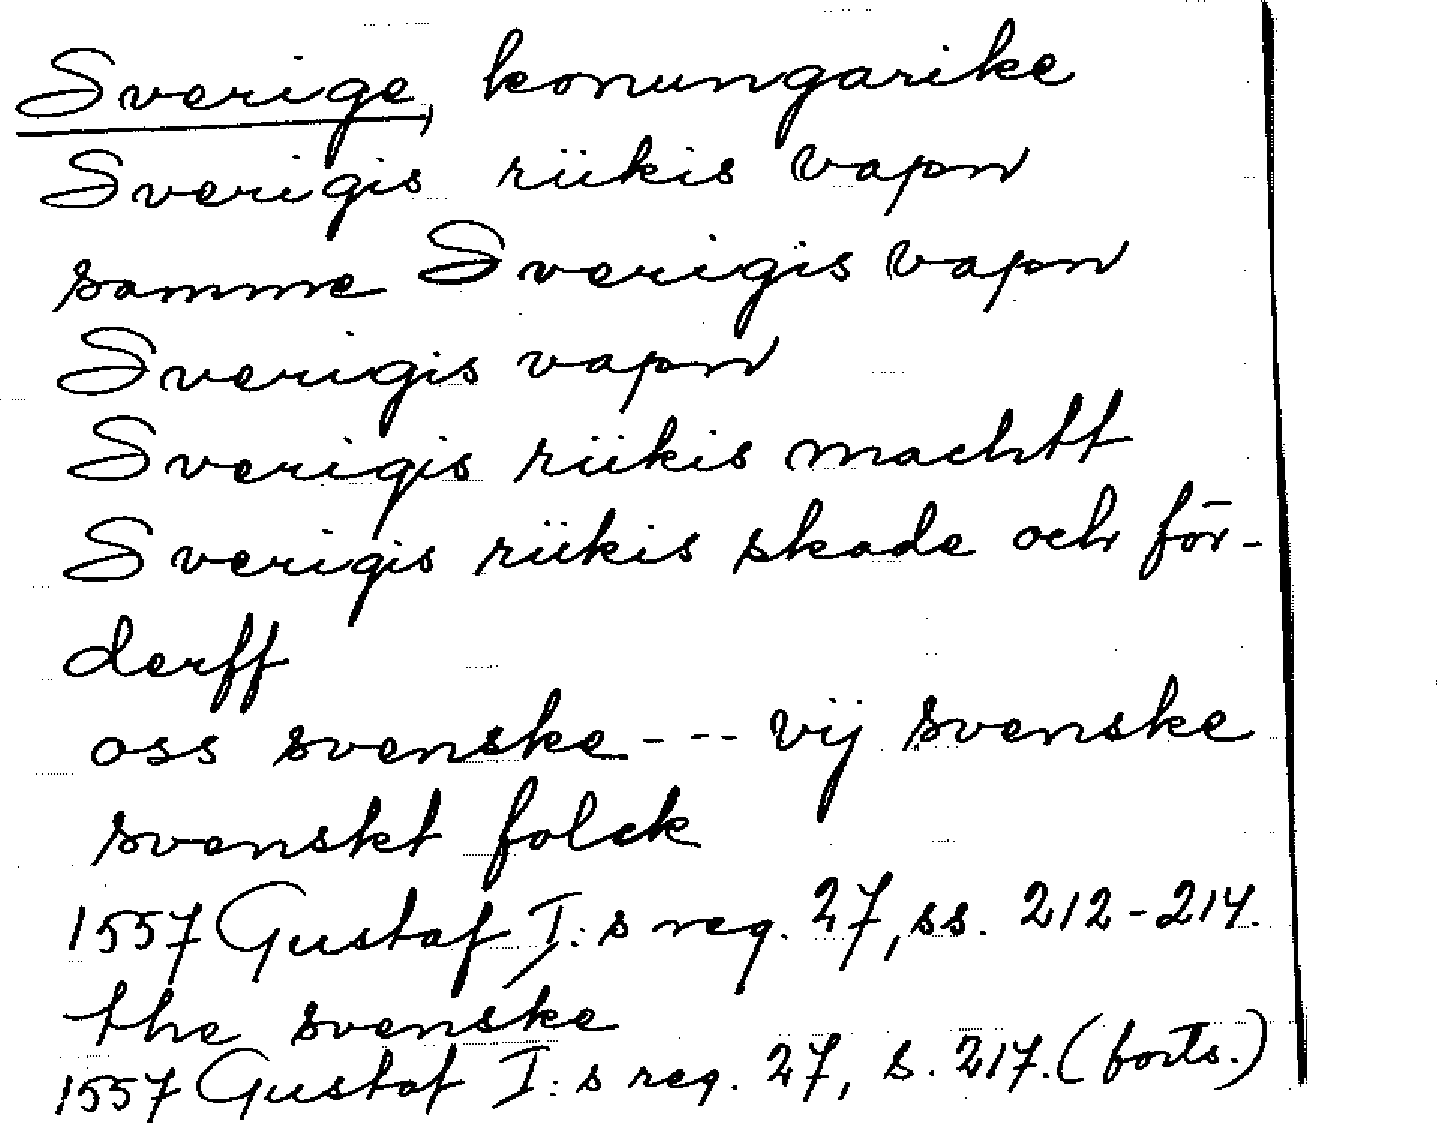 Sverige, konungarike
Sverigis riikis vapn
samme Sverigis vapn
Sverigis vapn
Sverigis riikis machtt
Sverigis riikis skade och för-
derff
oss svenske - - - vij svenske
svenskt folck
1557 Gustaf I:s reg. 27, ss. 212-214.
the svenske
1557 Gustaf I:s reg. 27, s. 217. (forts.)